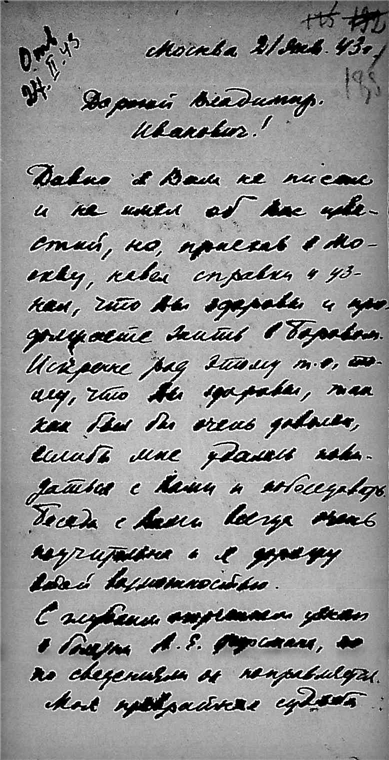 115 192
Отв.
27.II.43
Москва 21 Янв. 43 г.
195
Дорогой Владимир
Иванович!
Давно я Вам не писал
и не имел об Вас изве-
стий, но, приехав в Мо-
скву, навел справки и уз-
нал, что Вы здоровы и про
должаете жить в Боровом.
Искренне рад этому т.е. то-
му, что Вы здоровы, так
как был бы очень доволен,
если бы мне удалось пови-
даться с Вами и побеседовать
Беседа с Вами всегда очень
поучительна и я дорожу
этой возможностью.
С глубоким огорчением узнал
о болезни А.Е. Ферсмана, но
по сведениям он поправляется.
Моя